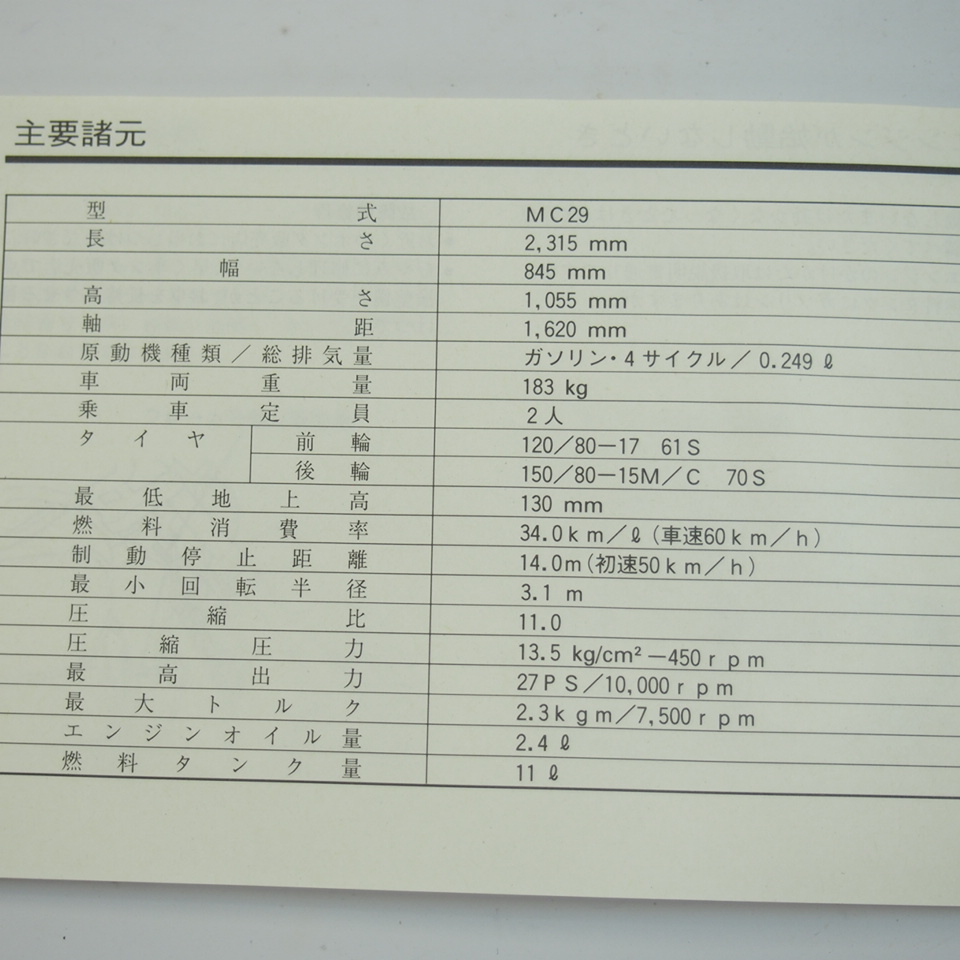 主要諸元
型式 MC29
長さ 2,315 mm
幅 845 mm
高さ 1,055 mm
軸距 1,620 mm
原動機種類／総排気量 ガソリン・4サイクル／0.249ℓ
車両重量 183 kg
乗車定員 2人
タイヤ 前輪 120／80－17 61S
後輪 150／80－15M／C 70S
最低地上高 130 mm
燃料消費率 34.0km／ℓ（車速60km／h）
制動停止距離 14.0m（初速50km／h）
最小回転半径 3.1 m
圧縮比 11.0
圧縮圧力 13.5 kg/cm²－450rpm
最高出力 27PS／10,000rpm
最大トルク 2.3kgm／7,500rpm
エンジンオイル量 2.4ℓ
燃料タンク量 11ℓ